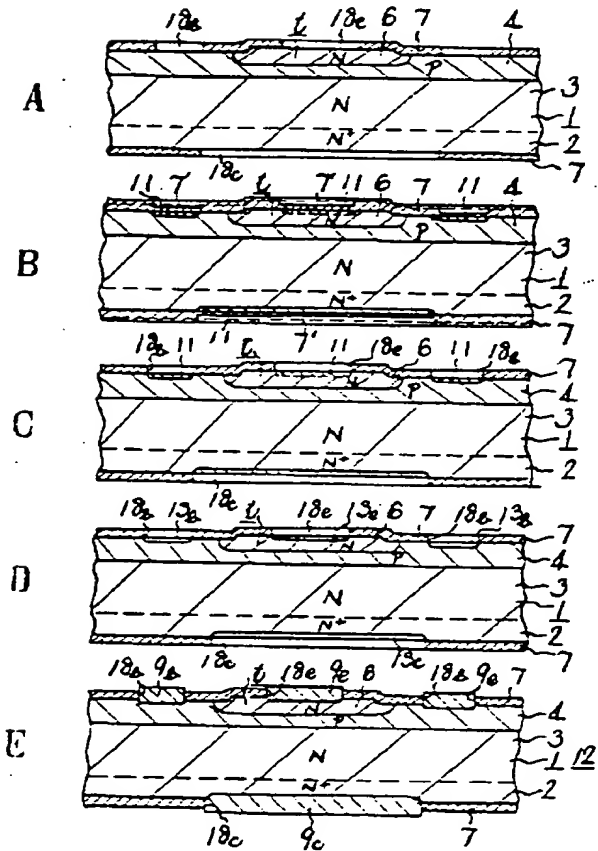 18B t 18e 6 7 4
A N P N N+ 3 1 2
18c 7
11 7' t 7' 11 6 7 11 4
B N P N N+ 3 1 2
11 7' 7
18B 11 t 11 18e 6 11 18B 7
C N P N N+ 4 3 1 2
18c
18B 13B t 18e 13e 6 7 18B 13B 7
D N P N N+ 4 3 1 2
18c 13c 7
18B 9B t 18e 9e 18B 9B 7
E N P N N+ 4 3 1 12 2
18c 9c 7